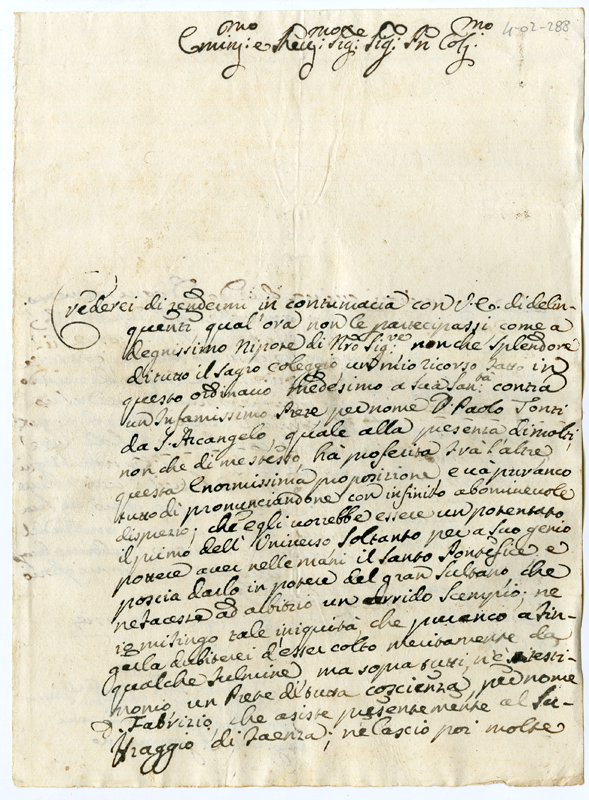 4-02-288
mo mo e mo
Emin: e Rev: Sig: Sig: Pñ Col:
Crederei di rendermi in contumacia con V. E. di delin-
quenti qual'ora non le partecipassi come a
degnissimo Nipote di Nrõ Sig:re non che splendore
di tutto il Sagro Coleggio un mio ricorso fatto in
questo ordinario medesimo a sua San:ta contra
un Infamissimo Prete per nome D. Paolo Tonti
da S. Arcangelo, quale alla presenza di molti,
non che di me stesso, hà proferita trà l'altre
questa Enormissima proposizione e và pur anco
tutto dì pronunciandone con infinito abominevole
disprezio; che egli vorrebbe essere un potentato
il primo dell'Universo soltanto per a suo genio
potere aver nelle mani il Santo Pontefice e
poscia darlo in potere del gran Sultano che
ne facesse ad albitrio un orrido Scempio; ne
mi tingo tale iniquità che pur anco a
dubiterei d'esser colto meritamente da
qualche fulmine, ma sopra tutti, n'è testi-
monio un Prete di tutta coscienza, per nome
D. Fabrizio che asiste presentemente al Su-
fraggio di Faenza; ne lascio poi molte